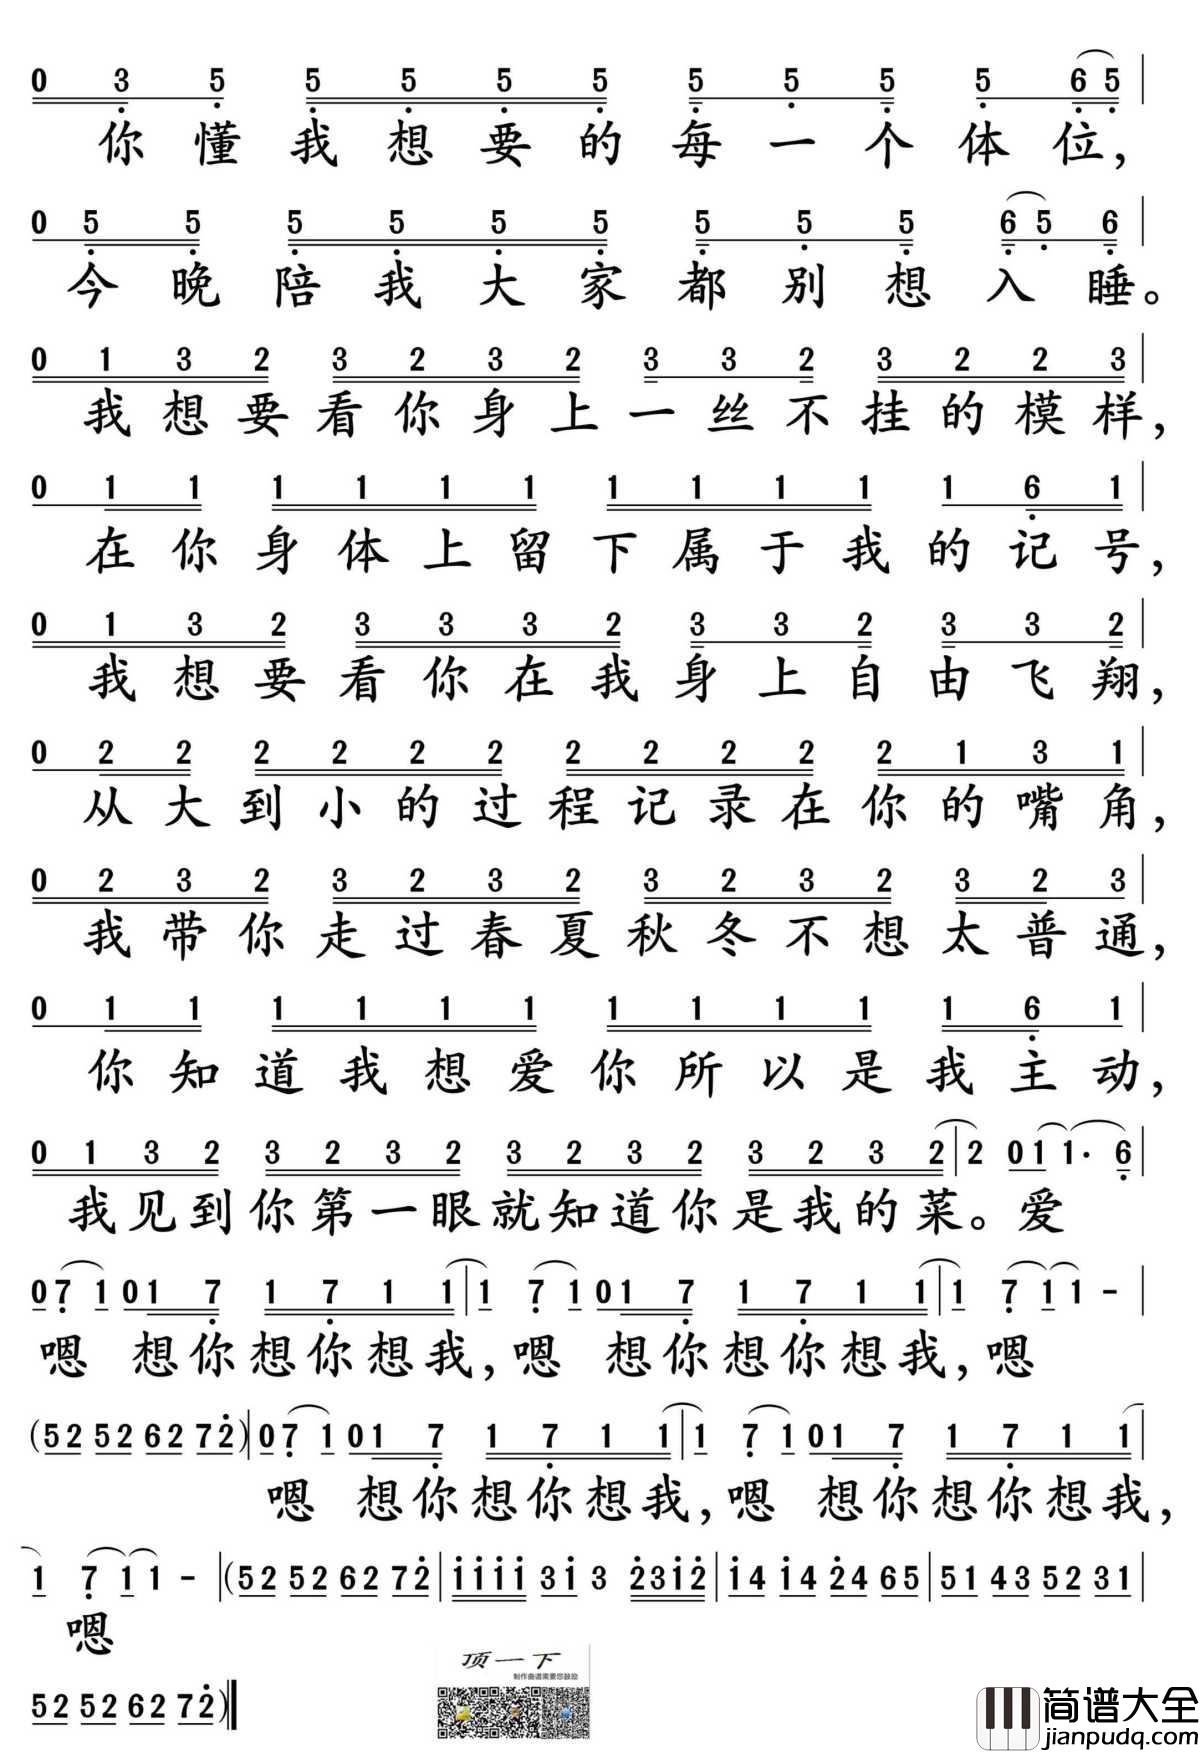 0 3 5 5 5 5 5 5 5 5 5 6 5
你懂我想要的每一个体位,
0 5 5 5 5 5 5 5 5 5 6 5 6
今晚陪我大家都别想入睡。
0 1 3 2 3 2 3 2 3 3 2 3 2 2 3
我想要看你身上一丝不挂的模样,
0 1 1 1 1 1 1 1 1 1 1 1 6 1
在你身体上留下属于我的记号,
0 1 3 2 3 3 3 2 3 3 2 3 3 2
我想要看你在我身上自由飞翔,
0 2 2 2 2 2 2 2 2 2 2 2 1 3 1
从大到小的过程记录在你的嘴角,
0 2 3 2 3 2 3 2 3 2 3 2 3 2 3
我带你走过春夏秋冬不想太普通,
0 1 1 1 1 1 1 1 1 1 1 1 6 1
你知道我想爱你所以是我主动,
0 1 3 2 3 2 3 2 3 2 3 2 3 2 3 2 | 2 0 1 1· 6
我见到你第一眼就知道你是我的菜。爱
0 7 1 0 1 7 1 7 1 1 | 1 7 1 0 1 7 1 7 1 1 | 1 7 1 1 -
嗯 想你想你想我,嗯 想你想你想我,嗯
(52 52 62 72) | 0 7 1 0 1 7 1 7 1 1 | 1 7 1 0 1 7 1 7 1 1
嗯 想你想你想我,嗯 想你想你想我,
1 7 1 1 - | (52 52 62 72 | 1111 31 3 2312 | 14 14 24 65 | 51 43 52 31 |
嗯
52 52 62 72)
顶一下
制作曲谱需要您鼓励
简谱大全
jianpudq.com